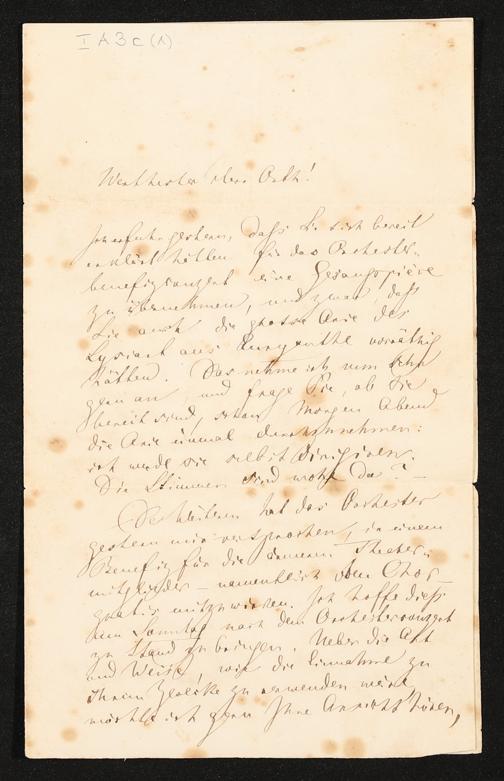 I A 3 c (1)
Werthester Herr Orth!
Ich erfuhr gestern, daß Sie sich bereit
erklärt hätten für das Orchester-
benefizconzert eine Gesangspièce
zu übernehmen, und zwar, daß
Sie auch die große Arie des
Lysiart aus Euryanthe vorräthig
hätten. Das nehme ich nun sehr
gern an, und frage Sie, ob Sie
bereit sind, schon Morgen Abend
die Arie einmal durchzunehmen:
ich werde sie selbst dirigiren.
Die Stimmen sind wohl da? —
Des Weiteren hat das Orchester
gestern mir versprochen, in einem
Benefiz für die ärmeren Theater-
mitglieder — namentlich dem Chor —
gratis mitzuwirken. Ich hoffe dieß
am Sonntag nach dem Orchesterconzert
zu Stand zu bringen. Ueber die Art
und Weise, wie die Einnahme zu
ihrem Zwecke zu verwenden wäre,
möchte ich gern Ihre Ansicht hören,